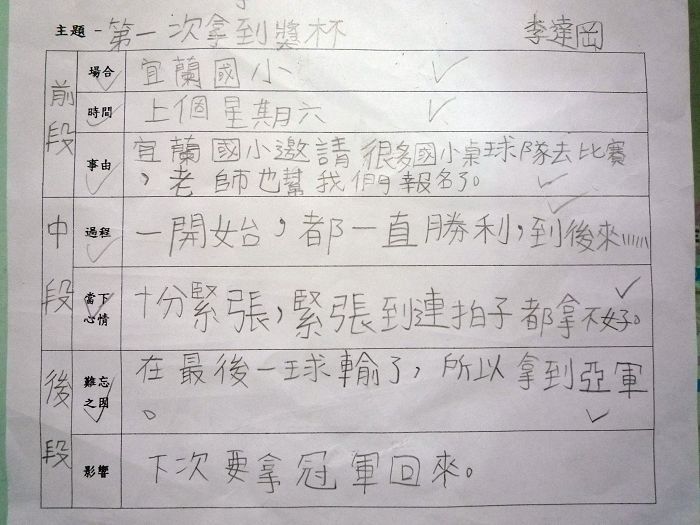 主題－第一次拿到獎杯 李達岡
前段
場合 宜蘭國小
時間 上個星期六
事由 宜蘭國小邀請很多國小桌球隊去比賽
，老師也幫我們報名了。
中段
過程 一開始，都一直勝利，到後來……
當下心情 十分緊張，緊張到連拍子都拿不好。
後段
難忘之因 在最後一球輸了，所以拿到亞軍
。
影響 下次要拿冠軍回來。